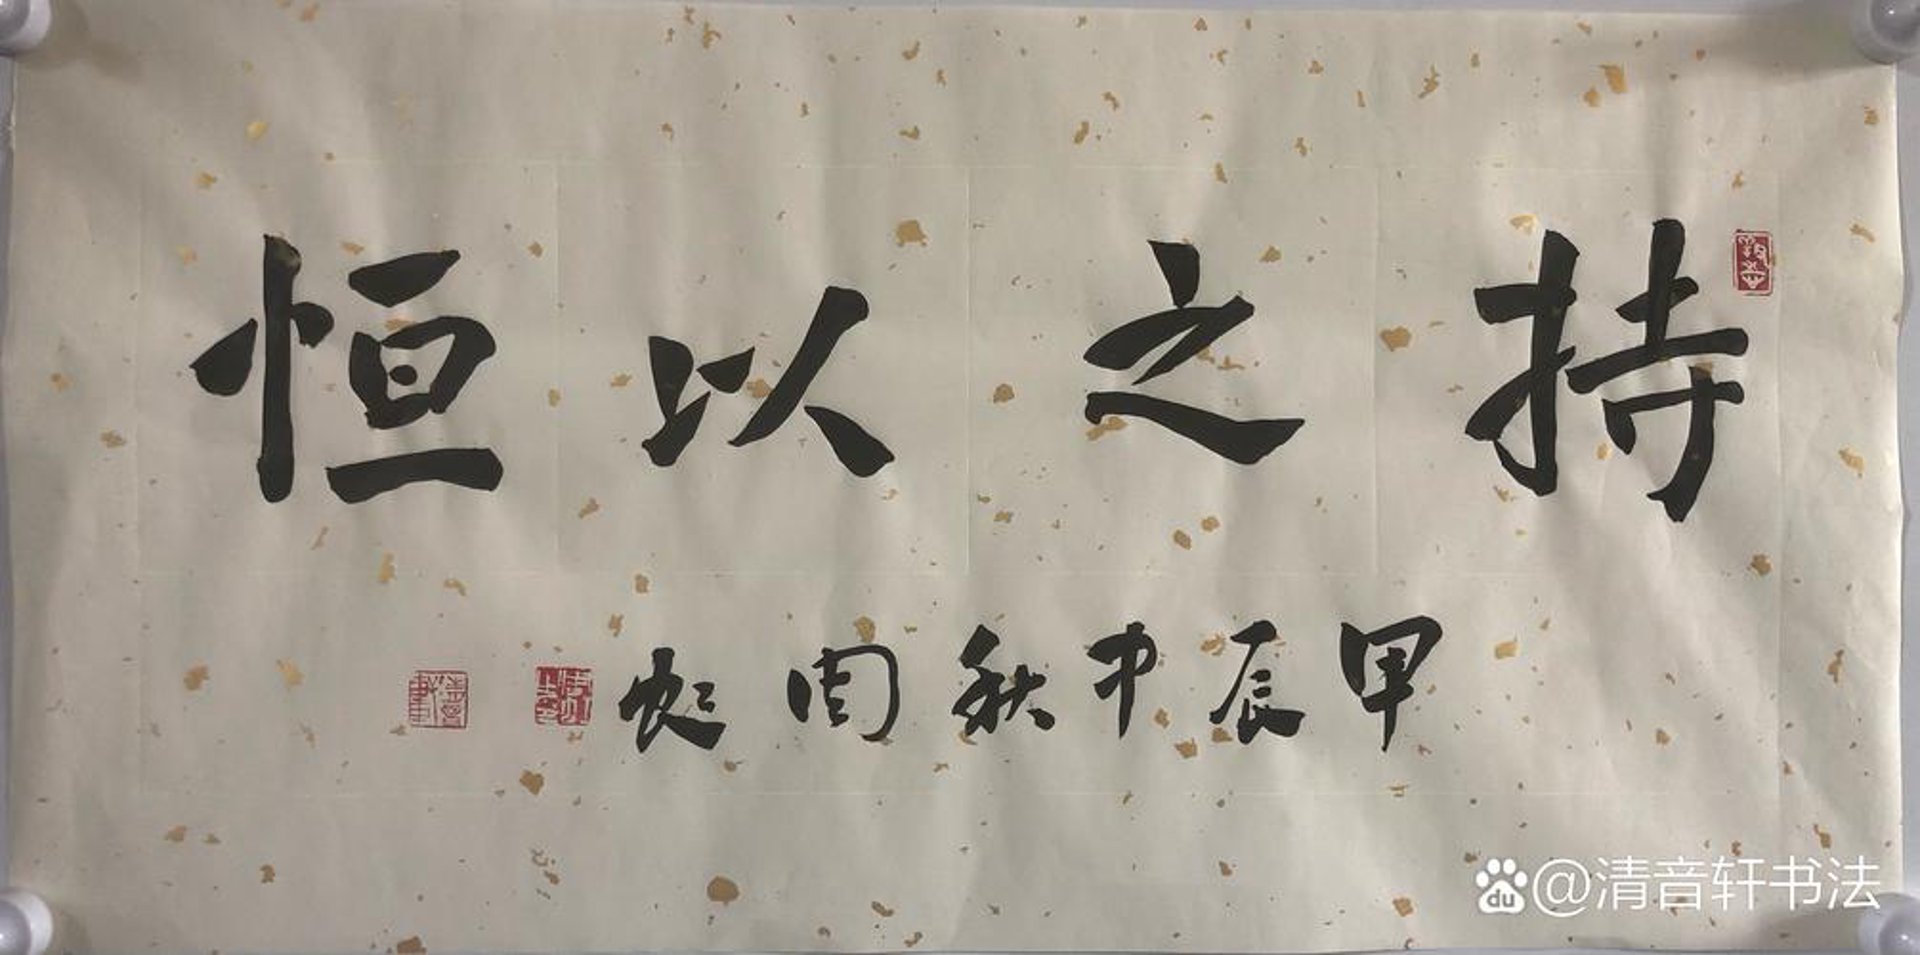 持之以恒
甲辰中秋周彬
@清音轩书法